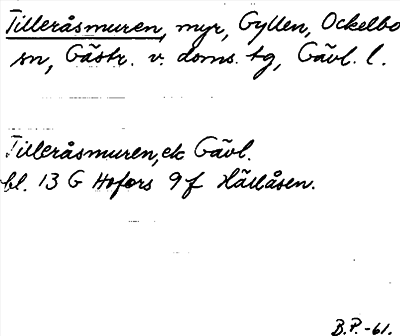 Tilleråsmuren, myr, Gyllen, Ockelbo
sn, Gästr. v. doms. tg, Gävl. l.
Tilleråsmuren, ek Gävl.
bl. 13 G Hofors 9 f Hällåsen.
B.P.-61.